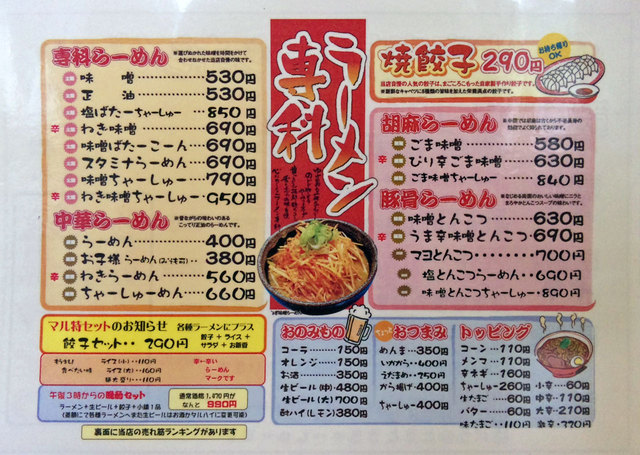 専科らーめん
味噌……530円
正油……530円
塩ばたーちゃーしゅー…850円
辛 ねぎ味噌……690円
味噌ばたーこーん…690円
スタミナらーめん…690円
味噌ちゃーしゅー…790円
辛 ねぎ味噌ちゃーしゅー…950円
中華らーめん
※昔ながらの味わいのある
こってり正油のらーめんです。
らーめん……400円
お子様らーめん……380円
辛 ねぎらーめん……560円
ちゃーしゅーめん……660円
マル特セットのお知らせ
各種ラーメンにプラス
餃子セット‥290円
餃子+ライス+
サラダ+お新香
ライス(小)‥110円
ライス(大)‥160円
辛=辛い
らーめん
マークです
午後3時からの晩酌セット
ラーメン+生ビール+餃子+小鉢1品
通常価格1,470円が
なんと 980円
裏面に当店の売れ筋ランキングがあります
ラーメン
専科
焼餃子 290円
お持ち帰り
OK
胡麻らーめん
ごま味噌……580円
辛 ぴり辛ごま味噌…630円
ごま味噌ちゃーしゅー…840円
豚骨らーめん
味噌とんこつ……630円
辛 うま辛味噌とんこつ…690円
マヨとんこつ……700円
塩とんこつらーめん…690円
味噌とんこつちゃーしゅー…890円
おのみもの
コーラ……150円
オレンジ……150円
お酒……350円
生ビール(中)480円
生ビール(大)700円
酎ハイ,レモン380円
ちょっとおつまみ
めんま…350円
いかがら…400円
うだまめ…250円
から揚げ…400円
ちゃーしゅー400円
トッピング
コーン‥110円
メンマ‥110円
辛ネギ…160円
ちゃーしゅー260円
生たまご…60円
バター…60円
味たまご‥110円
小辛‥60円
中辛‥110円
大辛‥210円
激辛‥320円